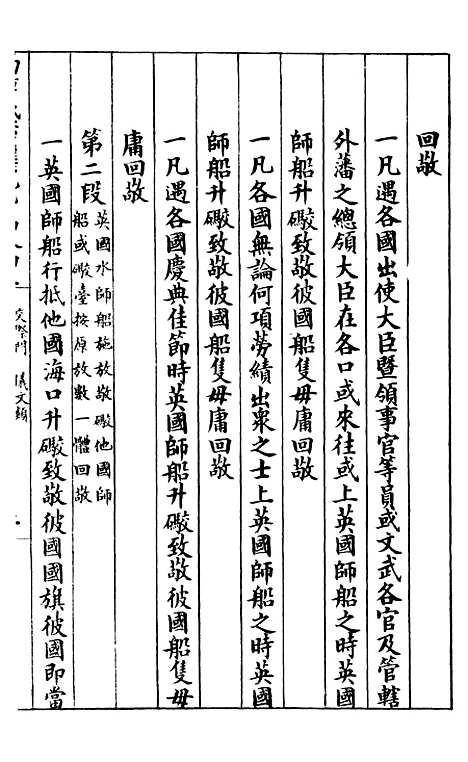 回敬
一凡遇各國出使大臣暨領事官等員或文武各官及管轄
外藩之總領大臣在各口或來往或上英國師船之時英國
師船升礮致敬彼國船隻毋庸回敬
一凡各國無論何項勞績出衆之士上英國師船之時英國
師船升礮致敬彼國船隻毋庸回敬
一凡遇各國慶典佳節時英國師船升礮致敬彼國船隻毋
庸回敬
第二段
英國水師船施放敬礮他國師
船或礮臺按原放數一體回敬
一英國師船行抵他國海口升礮致敬彼國國旗彼國即當
交際門 儀文類